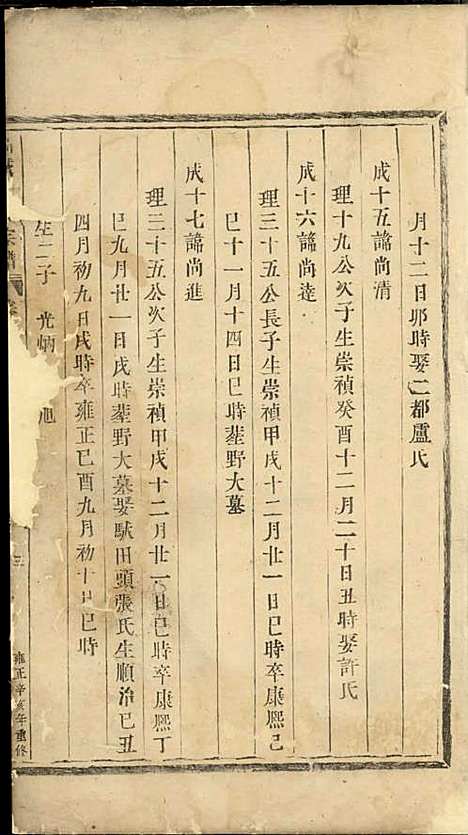 月十二日卯時娶二都盧氏
成十五諱尚清
理十九公次子生崇禎癸酉十二月二十日丑時娶許氏
成十六諱尚達
理三十五公長子生崇禎甲戌十二月廿一日巳時卒康熙己
巳十一月十四日巳時塟野大墓
成十七諱尚進
理三十五公次子生崇禎甲戌十二月廿一日巳時卒康熙丁
巳九月廿一日戌時塟野大墓娶馱田頭張氏生順治己丑
四月初九日戌時卒雍正己酉九月初十日巳時
生二子 光炳 旭
宗譜 三 雍正辛亥年重修